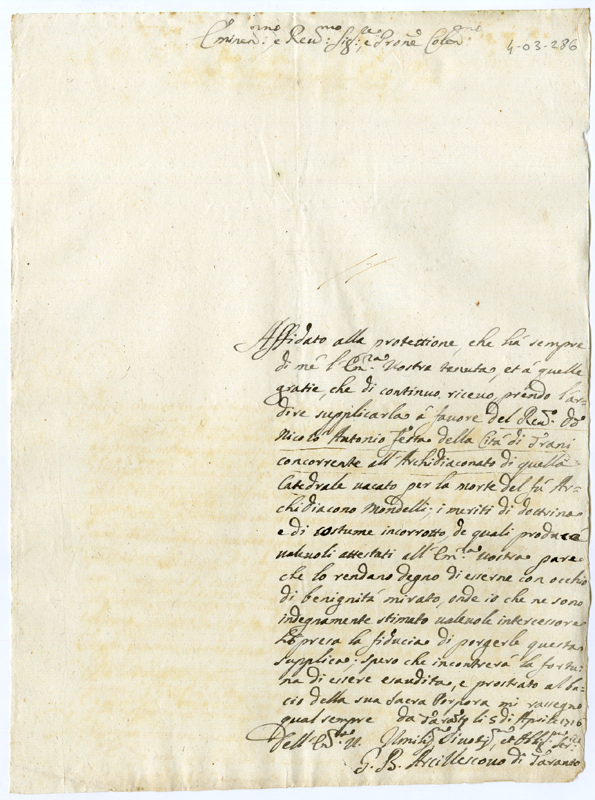 Eminen:mo e Reu:mo Sig:re e Prone Colen:mo
4-03-286
Affidato alla protettione, che hà sempre
di mè l'Em:za Vostra tenuta, et à quelle
gratie, che di continuo riceuo, prendo l'ar=
dire supplicarla à fauore del Reu:do D:
Nicolò Antonio Festa della Città di Trani
concorrente all'Archidiaconato di quella
Catedrale uacato per la morte del fù Ar=
chidiacono Mondelli; i meriti di dottrina
e di costume incorrotto, de quali produce
ualeuoli attestati all'Em:za Vostra pare
che lo rendano degno di esserne con occhio
di benignità mirato, onde io che ne sono
indegnamente stimato ualeuole intercessore
hò presa la fiducia di porgerle questa
supplica; spero che incontrerà la fortu=
na di essere esaudita, e prostrato al ba=
cio della sua Sacra Porpora mi rassegno
qual sempre da Taranto li 5 di Aprile 1716
Dell'Em:za V. Umiliss:mo Diuotiss:mo et Obligss:mo Ser:re
G. B. Arciuescouo di Taranto